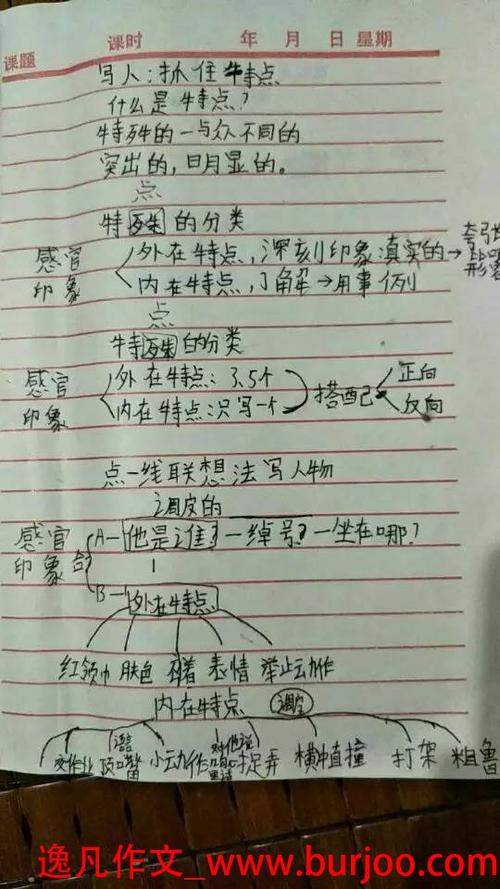 课题 课时 年 月 日 星期
写人:抓住特点
什么是特点?
特殊的一与众不同的
突出的,明显的。
点
特殊的分类
感官印象
外在特点,深刻印象 真实的→夸张 比喻 形容
内在特点,了解→用事例
点
特殊的分类
感官印象
外在特点:3.5个
内在特点:只写一个
搭配 正向 反向
点一线联想法写人物
调皮的
感官印象
A—他是谁?一绰号?一坐在哪?
B—外在特点
红领巾 肤色 表情 举止动作
内在特点 调皮
交作业 顶嘴 小动作 捉弄 横冲直撞 打架 粗鲁
逸凡作文_www.burjoo.com